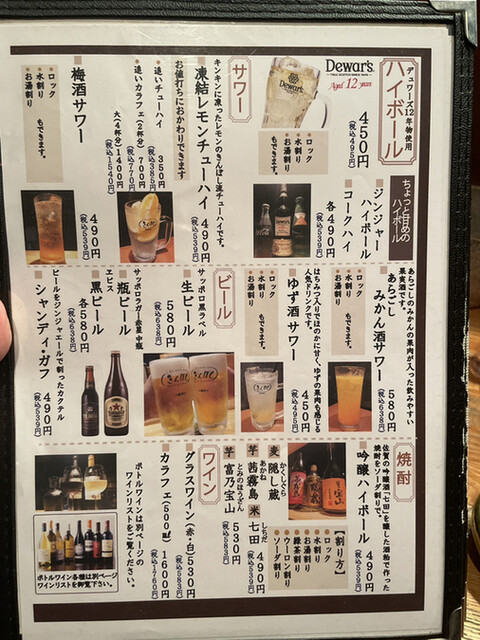 デュワーズ12年物使用
ハイボール
Dewar's
Aged 12 years
450円
(税込495円)
ロック
水割り
お湯割り
もできます。
サワー
キンキンに凍ったレモンのきんぼし流チューハイです。
凍結レモンチューハイ 490円
(税込539円)
お値打ちにおかわりできます
追いチューハイ 350円
(税込385円)
追いカラフェ(2杯分) 700円
(税込770円)
大(4杯分) 1400円
(税込1540円)
梅酒サワー
490円
(税込539円)
ロック
水割り
お湯割り
もできます。
ちょっと甘めの
ハイボール
ジンジャー
ハイボール
コークハイ
各490円
(税込539円)
あらごしのみかんの果肉が入った飲みやすい
果実酒です。
あらごし
みかん酒サワー
580円
(税込638円)
ロック
水割り
お湯割り
もできます。
はちみつ入りでほのかに甘く、ゆずの果肉も感じる
人気ドリンクです。
ゆず酒サワー
450円
(税込495円)
ロック
水割り
お湯割り
もできます。
ビール
サッポロ黒ラベル
生ビール
580円
(税込638円)
サッポロラガー赤星 中瓶
瓶ビール
ヱビス
黒ビール
各580円
(税込638円)
ビールをジンジャエールで割ったカクテル
シャンディ・ガフ
490円
(税込539円)
焼酎
佐賀の吟醸酒「七田」を醸した酒粕で作った
焼酎をソーダ割りで。
吟醸ハイボール 490円
(税込539円)
【割り方】
ロック
水割り
お湯割り
緑茶割り
ウーロン割り
ソーダ割り
麦 かくしぐら
隠し蔵
芋 あかね
茜霧島
米 しちだ
七田
490円
(税込539円)
芋 とみのほうざん
富乃宝山
530円
(税込583円)
ワイン
グラスワイン(赤・白) 530円
(税込583円)
カラフェ(500ml) 1600円
(税込1760円)
ボトルワインは別ページの
ワインリストをご覧ください。
ボトルワイン各種は別ページ
ワインリストを御覧下さい。